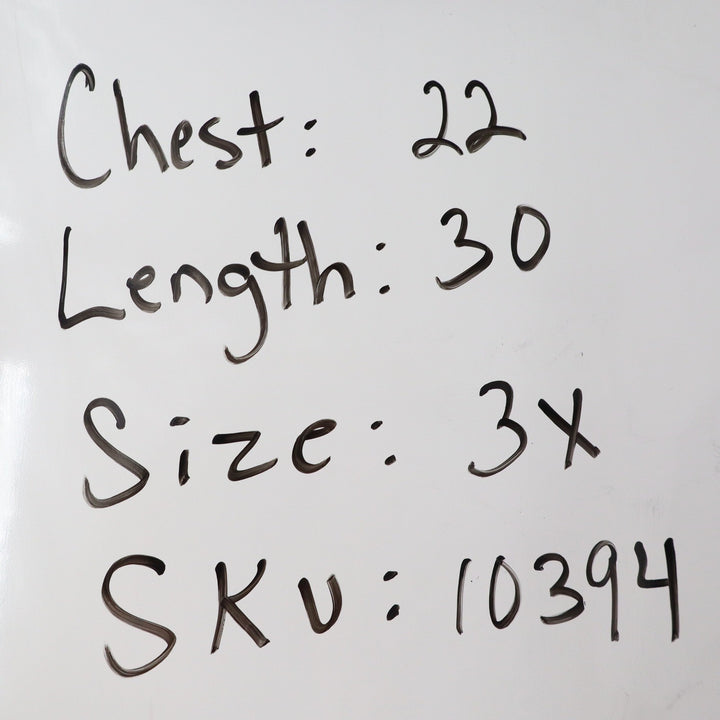 Chest: 22
Length: 30
Size: 3X
SKU: 10394